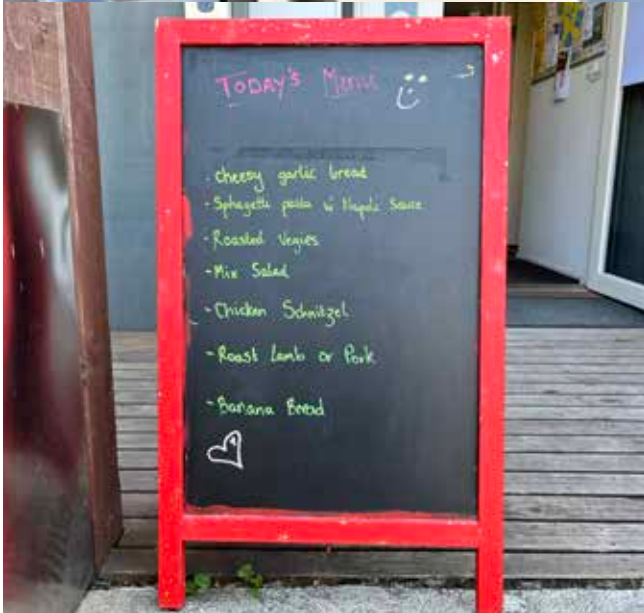 TODAY'S Menu
- cheesy garlic bread
- Sphagetti pasta w Napoli Sauce
- Roasted Vegies
- Mix Salad
- Chicken Schnitzel
- Roast Lamb or Pork
- Banana Bread